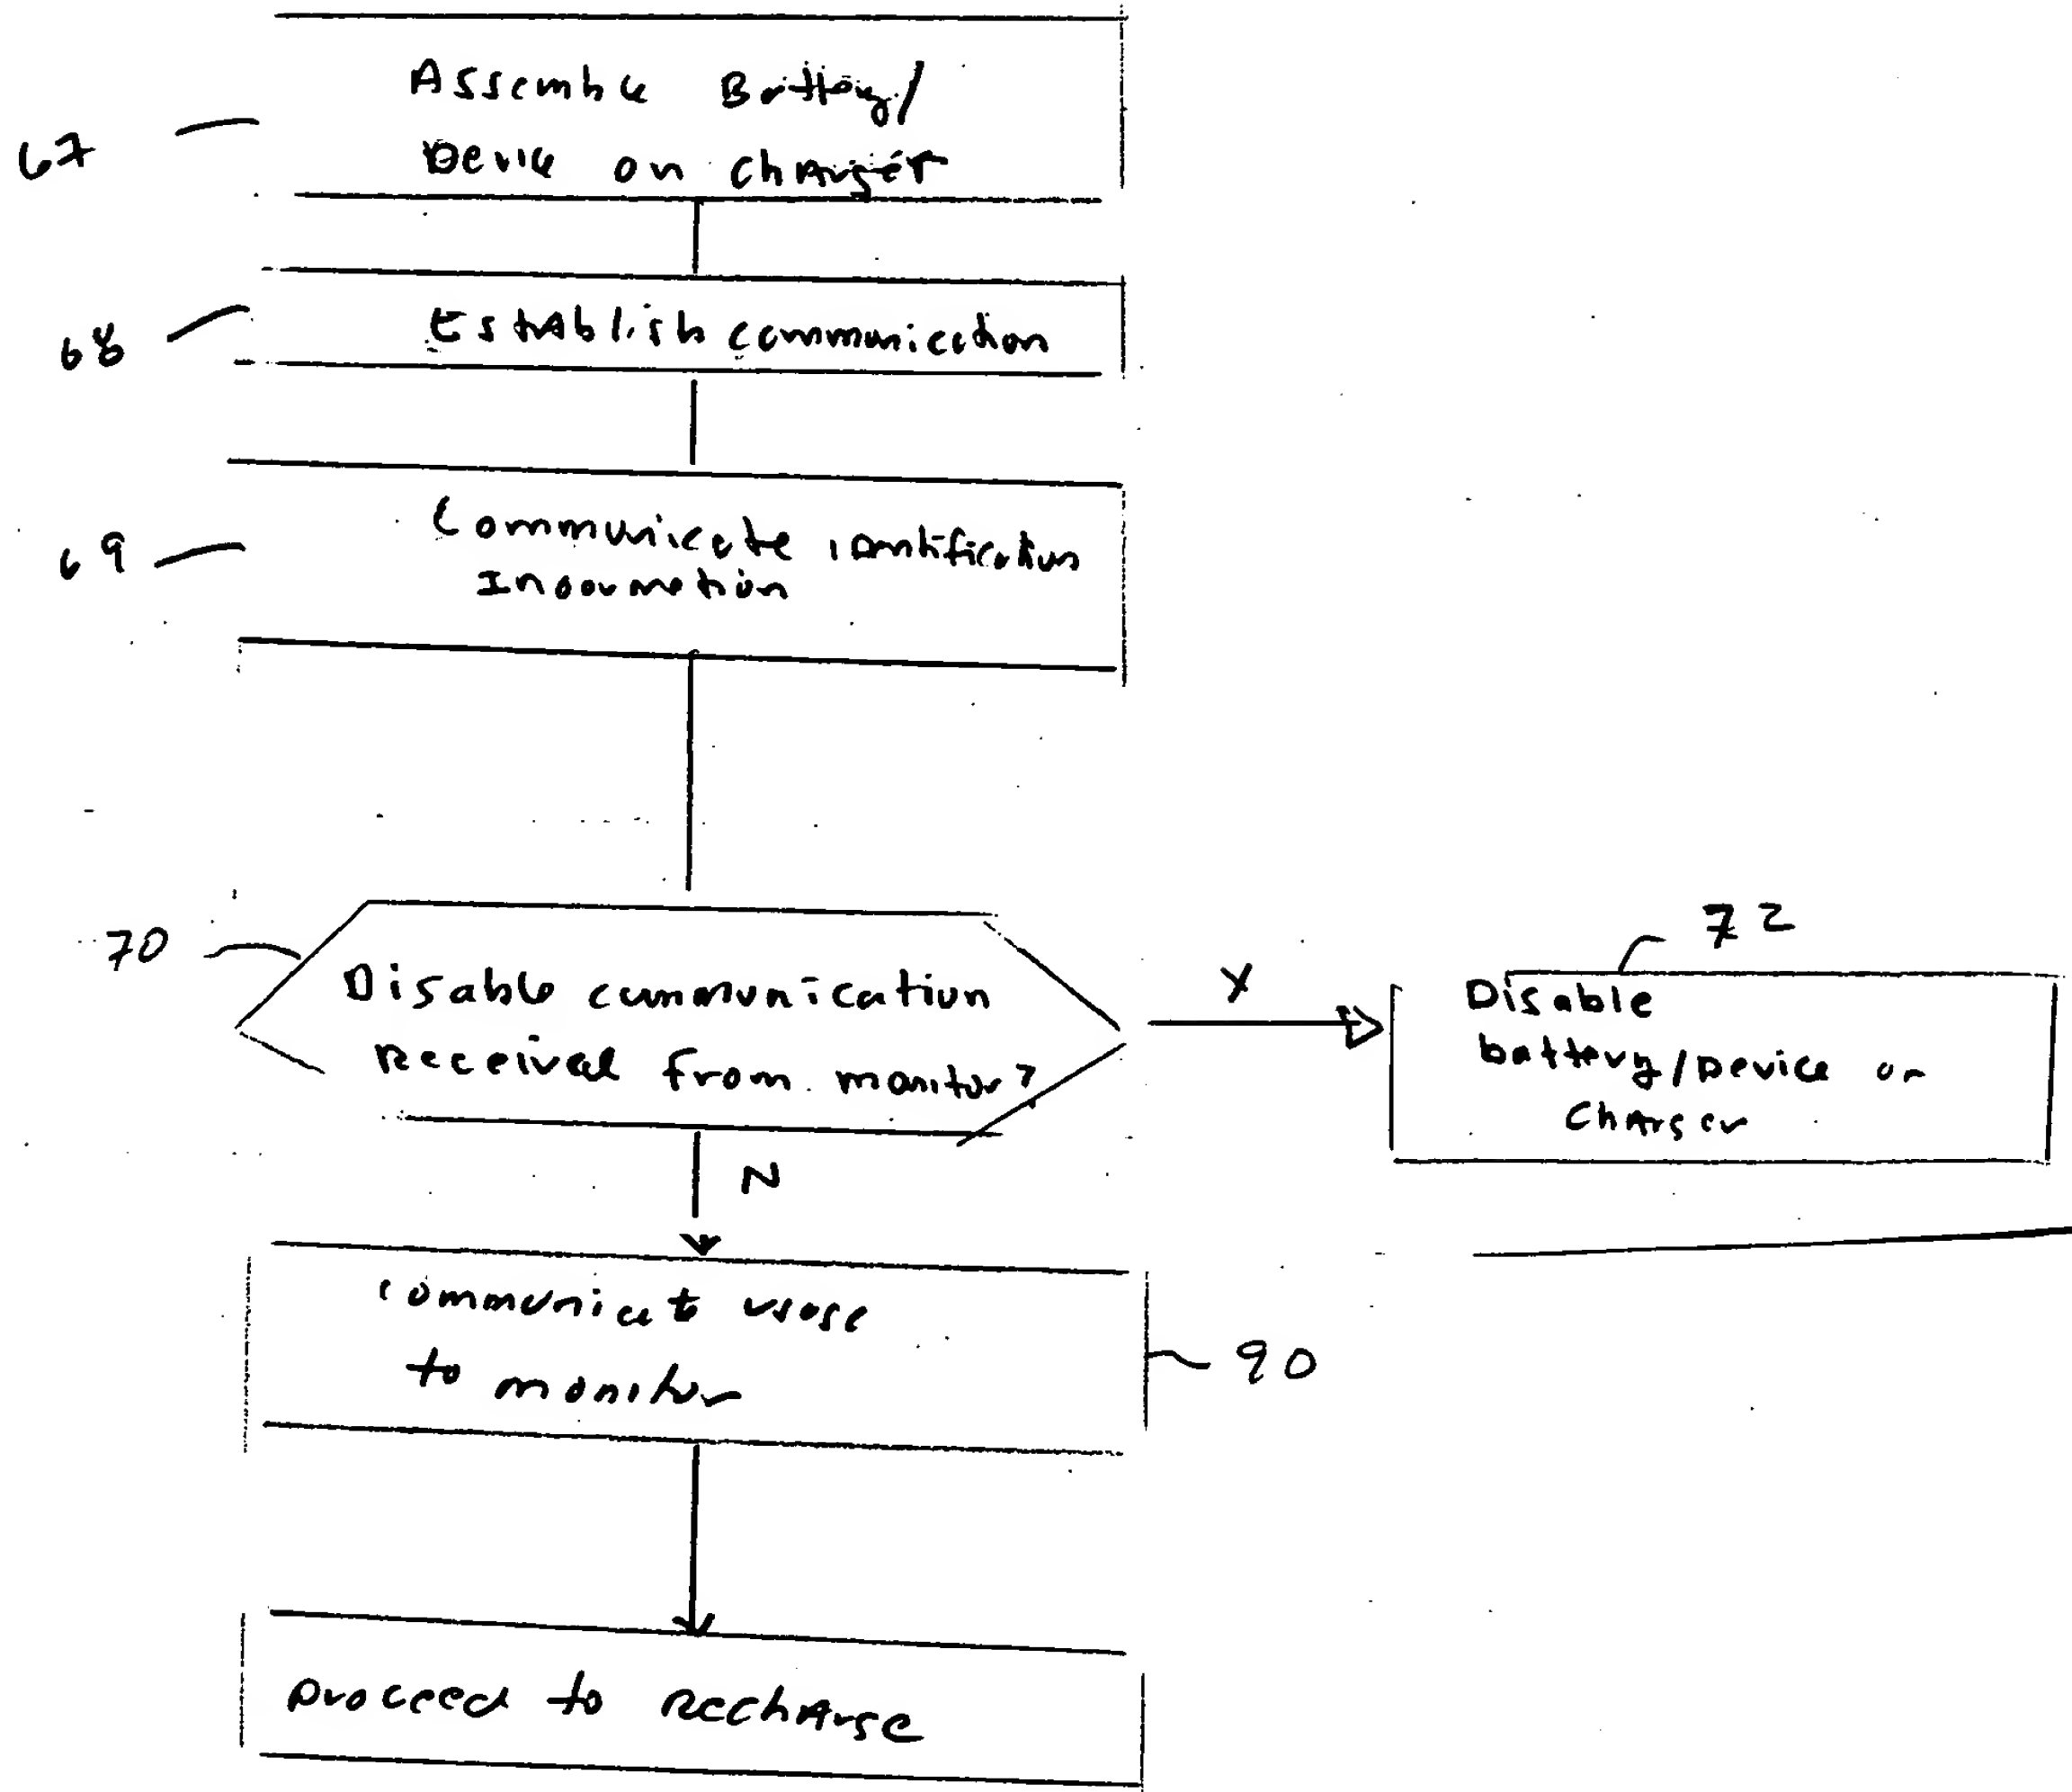 Assemble Battery/
67
Device on charger
68
Establish communication
69
Communicate identification
Information
70
Disable communication
Received from monitor?
Y
72
Disable
battery/Device or
Charger
N
Communicate usage
to monitor
90
proceed to Recharge